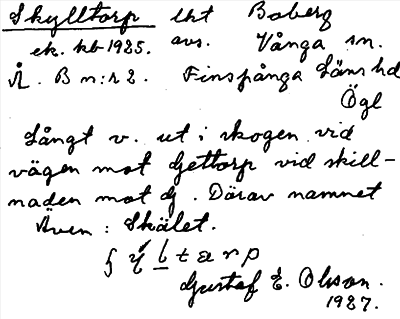 Skylltorp lht Boberg
ek. kb 1925. avs. Vånga sn.
Å. B n:r 2. Finspånga Läns hd
Ögl
Långt v. ut i skogen vid
vägen mot Gettorp vid skill-
naden mot Gj. Därav namnet
Även: Skälet.
Gustaf E. Olsson.
1927.